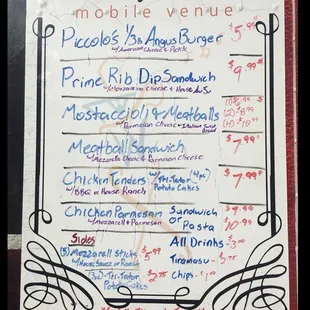 mobile venue
Piccolo's 1/3lb Angus Burger $5.99
w/American Cheese & Pickle
Prime Rib Dip Sandwich $9.99
w/Mozzarella Cheese & House Au Ju
Mostaccioli & Meatballs
w/Parmesan Cheese & Italian Bread
Meatball Sandwich $7.99
w/Mozzarella Cheese & Parmesan Cheese
Chicken Tenders w/Tri-Tator (4pc) $7.99
w/BBQ or House Ranch Potato Cakes
Chicken Parmesan Sandwich $9.99
w/Mozzarella & Parmesan or Pasta 10.99
Sides All Drinks $3.00
(5) Mozzarella Sticks $5.99 Tiramasu
w/House Sauce or Ranch
Tri-Tator $2.75 Chips $1.00
Potato Cakes